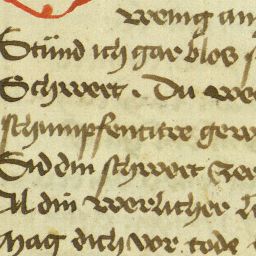 wenig an
Stünd ich gar blos
Schwert. Du
schumpfentitre
Sid din schwert
Al din werlicher
mag dich vor tode